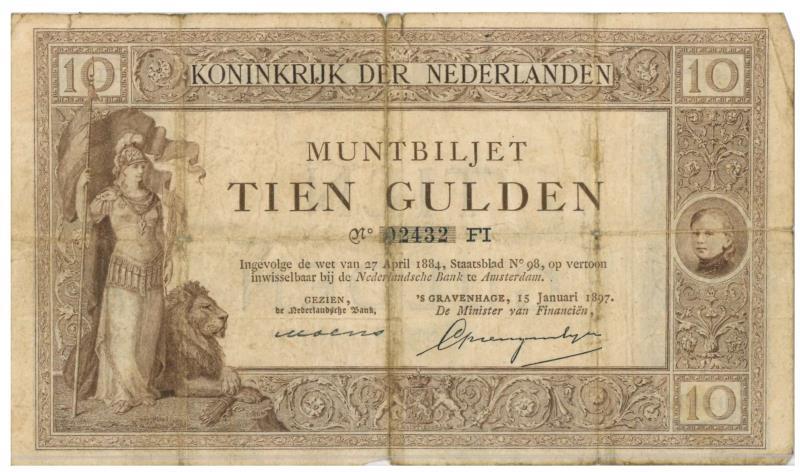 10 KONINKRIJK DER NEDERLANDEN 10
MUNTBILJET
TIEN GULDEN
No 02432 FI
Ingevolge de wet van 27 April 1884, Staatsblad No 98, op vertoon
inwisselbaar bij de Nederlandsche Bank te Amsterdam.
GEZIEN,
de Nederlandsche Bank,
'S GRAVENHAGE, 15 Januari 1897.
De Minister van Financiën,
10